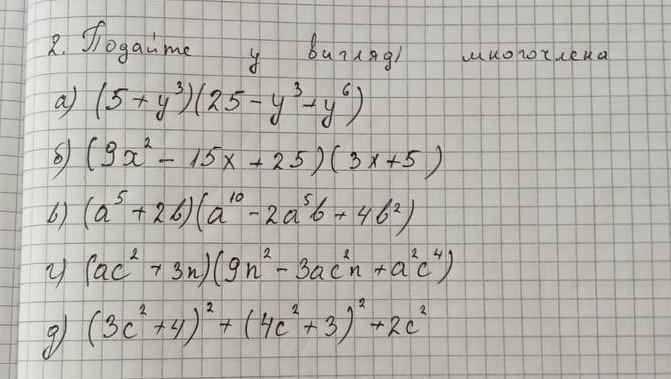 2. Подайте у вигляді многочлена
а) (5 + y³)(25 - y³ + y⁶)
б) (9x² - 15x + 25)(3x + 5)
в) (a⁵ + 2b)(a¹⁰ - 2a⁵b + 4b²)
г) (ac² + 3n)(9n² - 3ac²n + a²c⁴)
д) (3c² + 4)² + (4c² + 3)² + 2c²